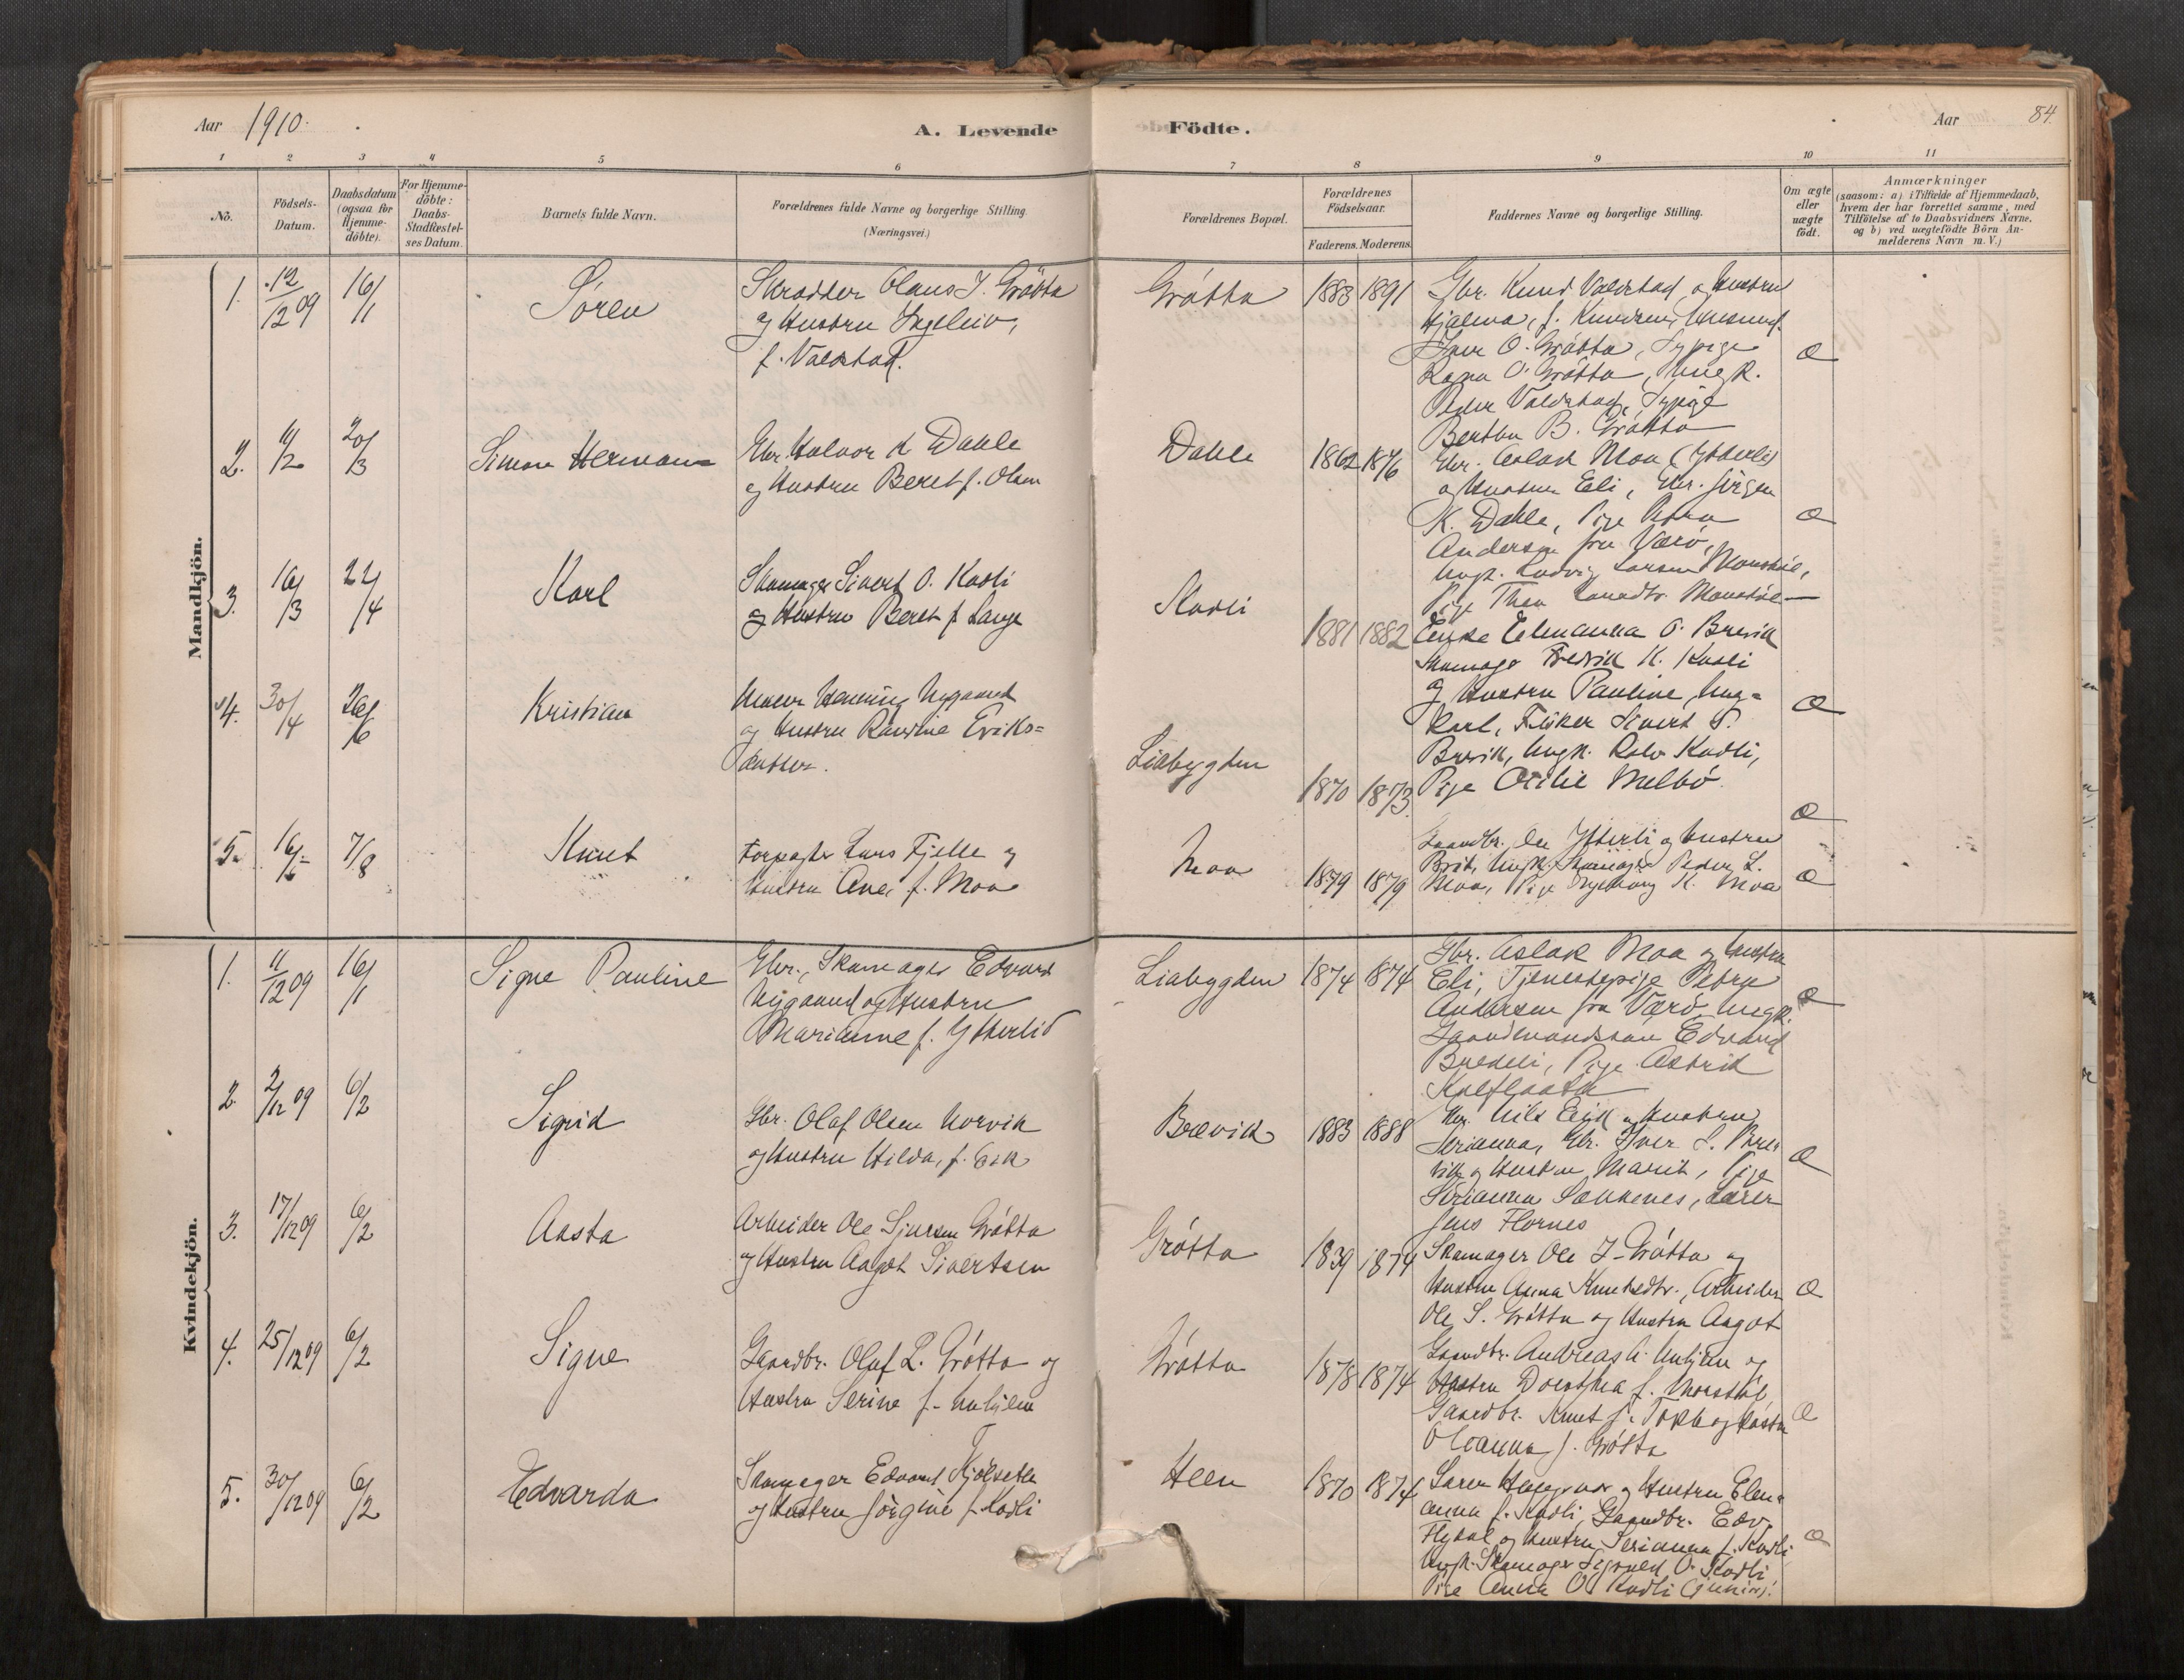 Aar 1910.
A. Levende Födte.
Aar 84.
1 2 3 4 5 6 7 8 9 10 11
No.
Födsels-Datum.
Daabsdatum (ogsaa for Hjemme-döbte).
For Hjemme-döbte: Daabs-Stadfæstel-ses Datum.
Barnets fulde Navn.
Forældrenes fulde Navne og borgerlige Stilling.
(Næringsvei.)
Forældrenes Bopæl.
Forældrenes Födselsaar.
Faderens. Moderens.
Faddernes Navne og borgerlige Stilling.
Om ægte eller uægte födt.
Anmærkninger
(saasom: a) i Tilfælde af Hjemmedaab,
hvem der har forrettet samme, med
Tilföielse af to Daabsvidners Navne,
og b) ved uægtefödte Börn An-
melderens Navn m. V.)
Mandkjön.
1. 12/12 09 16/1 Søren
Skrædder Olaus J. Grötta
og Hustru Ingeleiv,
f. Valdstad.
Grötta 1883 1891
Gbr. Knud Valdstad og Hustru
Hjalma, f. Knudsen,
Iver O. Grötta, Sypige
O. Grötta, Ungk.
Peder Valdstad, Sypige
Bertha B. Grötta
Æ
2. 11/2 20/3 Simon Herman
Gbr. Halvor K Dahle
og Hustru Beret f. Olsen
Dahle 1862 1876
Gbr. Aslak Moa (Ytterli)
og Hustru Eli, Gbr. Jörgen
K. Dahle, Pige Petra
Andersen fra Værö,
Ungk. Ludvig Larsen
Pige Thea
Æ
3. 16/3 22/4 Karl
Skomager Sivert O. Kodli
og Hustru Beret f. Lange
Kodli 1881 1882
Enke Elenanna O. Brevik
Skomager Fredrik K. Kodli
og Hustru Pauline, Ung-
karl, Fisker Sivert S.
Brevik, Ungk. Kodli,
Pige Melbö.
Æ
4. 30/4 26/6 Kristian
Henning Nygaard
og Hustru Eriks-
datter.
Liabygden 1870 1873.
Æ
5. 16/6 7/8 Knut
Forpagter Lars Fjelle og
Hustru Ane, f. Moa
Moa 1879 1879
Gaardbr. Ole Ytterli og Hustru
Brit, Ungk. Skomager Peder L.
Moa, Pige Ingeborg K. Moa
Æ
Kvindekjön.
1. 11/12 09 16/1 Signe Pauline
Gbr., Skomager Edvard
Nygaard og Hustru
Marianne f. Ytterlid
Liabygden 1874 1874
Gbr. Aslak Moa og Hustru
Eli, Tjenestepige Petra
Andersen fra Værö, Ungk.
Gaardmandssøn Edvard
Bredeli, Pige Astrid
Kalfflaata
Æ
2. 2/12 09 6/2 Sigrid
Gbr. Olaf Olsen Norvik
og Hustru Hilda, f. Eik
Brævik 1883 1888
Gbr. Nils Eik og Hustru
Serianna, Gbr. Iver S. Bre-
vik og Hustru Marit, Pige
Serianna Søknes, Lærer
Jens Flornes
Æ
3. 17/12 09 6/2 Aasta
Arbeider Ole Sjursen Grötta
og Hustru Aagot Sivertsen
Grötta 1839 1874
Skomager Ole J. Grötta og
Hustru Anna Knutsdtr., Arbeider
Ole S. Grötta og Hustru Aagot
Æ
4. 25/12 09 6/2 Signe
Gaardbr. Olaf L. Grötta og
Hustru Serine f. Unhjem
Grötta 1878 1874
Gaardbr. Andreas A. Unhjem og
Hustru Dorothea f.
Gaardbr. Knut J. og Hustru
Oleanna f. Grötta
Æ
5. 30/12 09 6/2 Edvarda
Skomager Edvard Kjölsetli
og Hustru Jörgine f. Kodli
Heen 1870 1874
Lærer og Hustru Elen-
anna f. Kodli, Gaardbr. Edv.
Flydal og Hustru Serianna f. Kodli
Ungk. Skomager Sigvald O. Kodli
Pige Anna O. Kodli (junior).
Æ